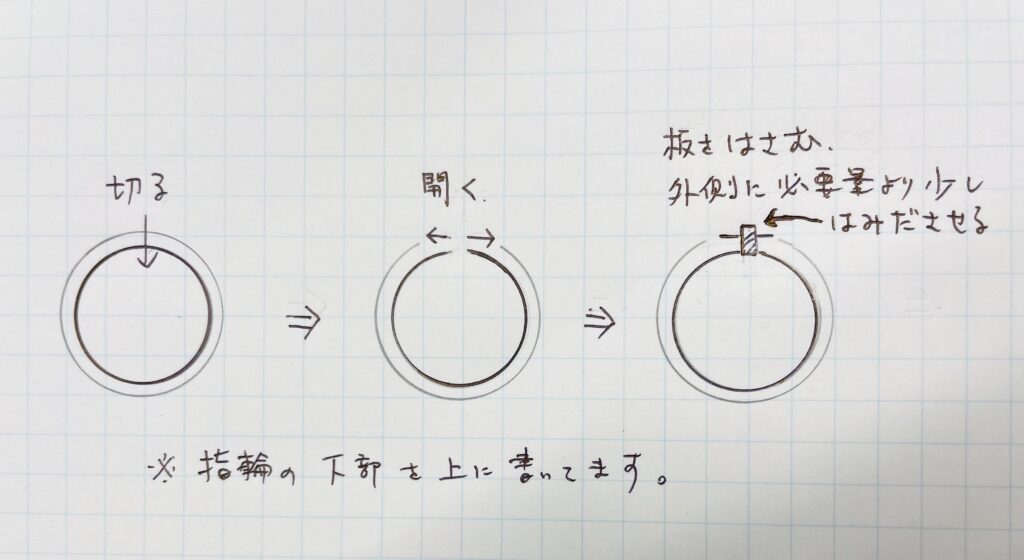 切る
開く.
板をはさむ.
外側に必要量より少し
はみださせる
※ 指輪の下部を上に書いてます。